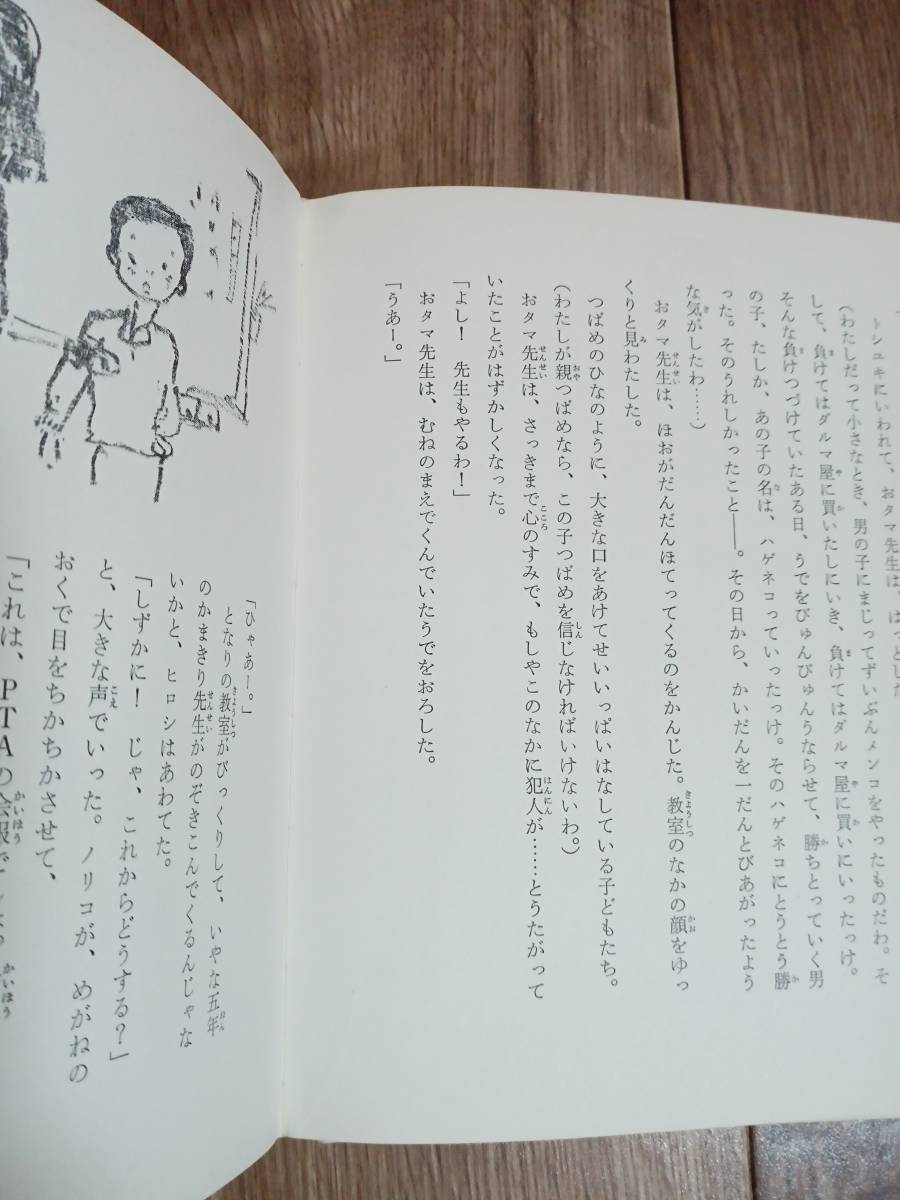 トシユキにいわれて、おタマ先生は、はっとした
(わたしだって小さなとき、男の子にまじってずいぶんメンコをやったものだわ。そ
して、負けてはダルマ屋に買いたしにいき、負けてはダルマ屋に買いにいったっけ。
そんな負けつづけていたある日、うでをびゅんびゅんうならせて、勝ちとっていく男
の子、たしか、あの子の名は、ハゲネコっていったっけ。そのハゲネコにとうとう勝
った。そのうれしかったこと――。その日から、かいだんを一だんとびあがったよう
な気がしたわ……)
おタマ先生は、ほおがだんだんほてってくるのをかんじた。教室のなかの顔をゆっ
くりと見わたした。
つばめのひなのように、大きな口をあけてせいいっぱいはなしている子どもたち。
(わたしが親つばめなら、この子つばめを信じなければいけないわ。)
おタマ先生は、さっきまで心のすみで、もしやこのなかに犯人が……とうたがって
いたことがはずかしくなった。
「よし！　先生もやるわ！」
おタマ先生は、むねのまえでくんでいたうでをおろした。
「うあー。」
「ひゃあー。」
となりの教室がびっくりして、いやな五年
のかまきり先生がのぞきこんでくるんじゃな
いかと、ヒロシはあわてた。
「しずかに！　じゃ、これからどうする？」
と、大きな声でいった。ノリコが、めがねの
おくで目をちかちかさせて、
「これは、PTAの会報で